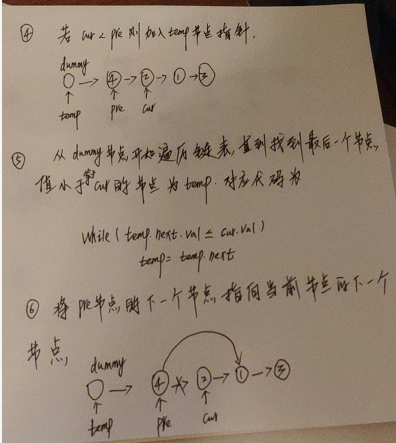 ④ 若 cur < pre 则加入 temp 节点指针.
dummy
○ → ④ → ② → ① → ③
temp pre cur
⑤ 从 dummy 节点开始遍历链表,直到找到最后一个节点,
值小于等于 cur 的节点为 temp. 对应代码为
while ( temp.next.val ≤ cur.val )
temp = temp.next
⑥ 将 pre 节点的下一个节点指向当前节点的下一个
节点,
dummy
○ → ④ → ② → ① → ③
temp pre cur